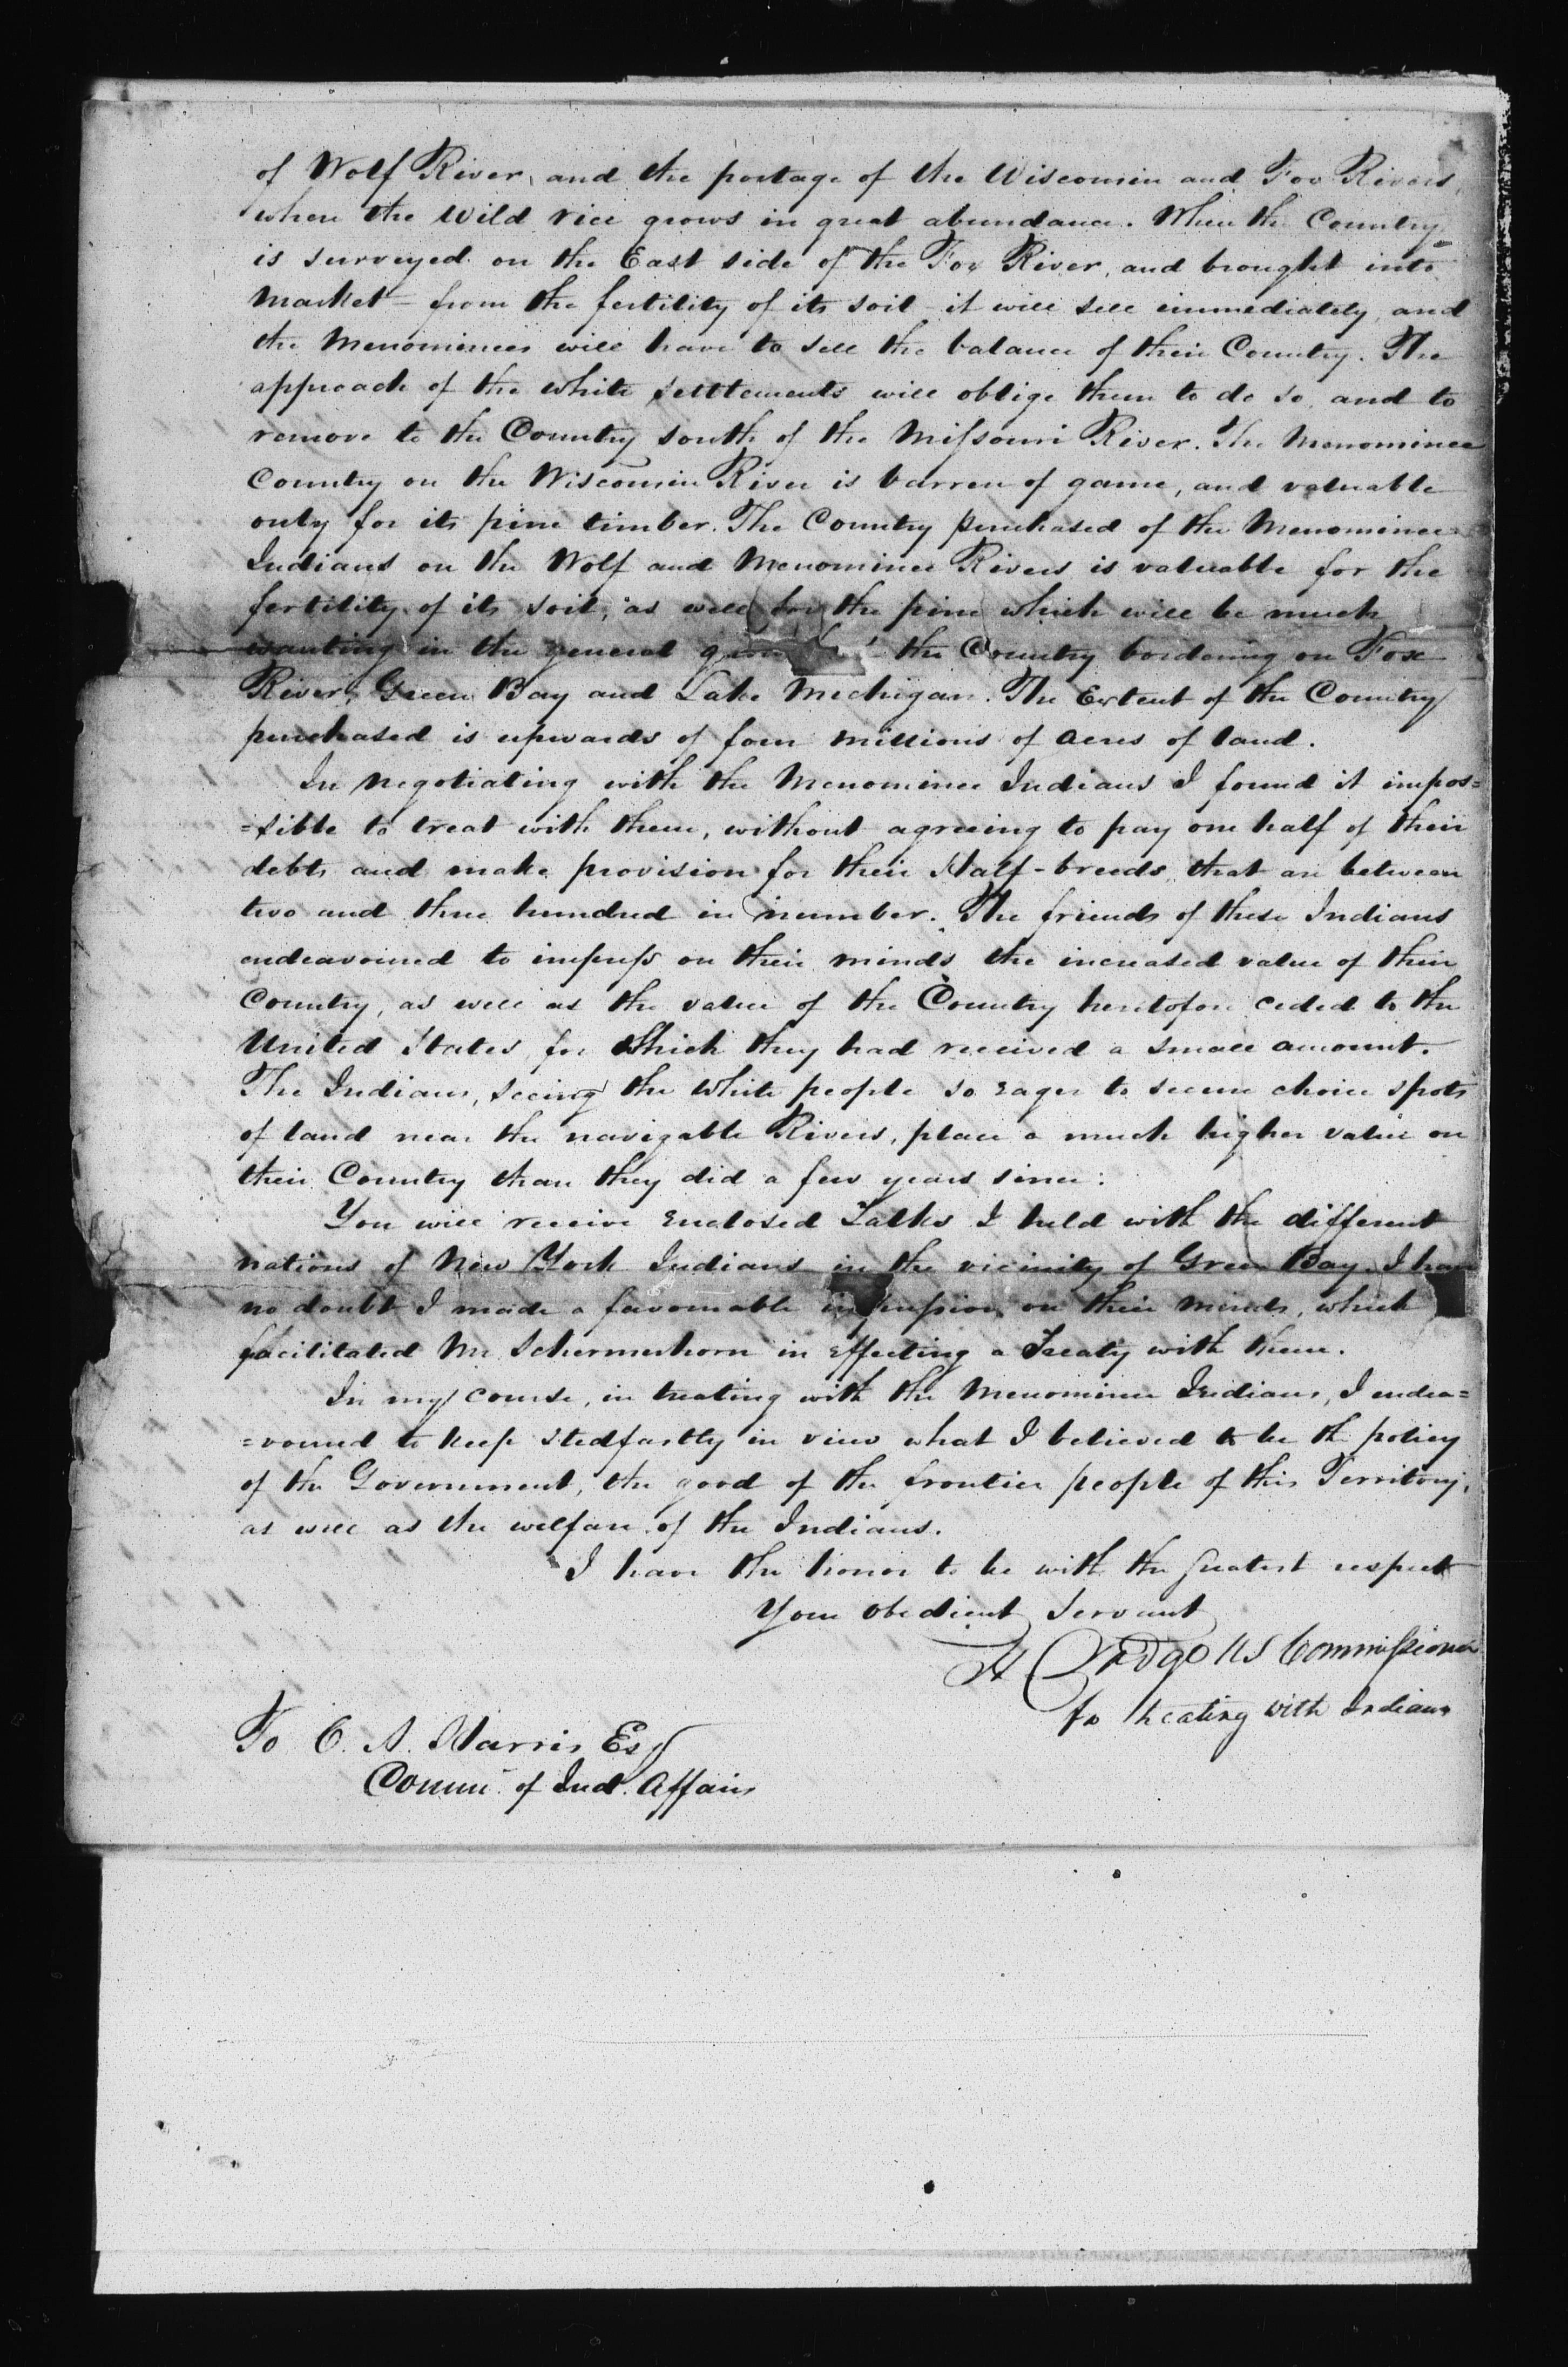 of Wolf River, and the portage of the Wisconsin and Fox Rivers,
where the Wild rice grows in great abundance. When the Country
is surveyed on the East side of the Fox River, and brought into
Market – from the fertility of its soil – it will sell immediately, and
the Menominees will have to sell the balance of their Country. The
approach of the white settlements will oblige them to do so, and to
remove to the Country south of the Missouri River. The Menominee
Country on the Wisconsin River is barren of game, and valuable
only for its pine timber. The Country purchased of the Menominee
Indians on the Wolf and Menominee Rivers is valuable for the
fertility of its soil, as well for the pine which will be much
wanting in the general the Country bordering on Fox
River, Green Bay and Lake Michigan. The Extent of the Country
purchased is upwards of four millions of acres of land.
In negotiating with the Menominee Indians I found it impos=
=sible to treat with them, without agreeing to pay one half of their
debts and make provision for their Half-breeds that are between
two and three hundred in number. The friends of these Indians
endeavoured to impress on their minds the increased value of their
Country, as well as the value of the Country heretofore ceded to the
United States, for Which they had received a small amount.
The Indians, seeing the White people so eager to secure choice spots
of land near the navigable Rivers, place a much higher value on
their Country than they did a few years since:
You will receive Enclosed Talks I held with the different
nations of New York Indians in the vicinity of Green Bay. I have
no doubt I made a favourable impression on their minds, which
facilitated Mr. Schermerhorn in effecting a Treaty with them.
In my course, in treating with the Menominee Indians, I endea=
=voured to keep stedfastly in view what I believed to be th policy
of the Government, the good of the frontier people of this Territory,
as well as the welfare of the Indians.
I have the honor to be with the greatest respect
Your obedient Servant
H Dodge US Commissioner
for treating with Indians
To C. A. Harris Esq
Comm. of Ind. Affairs